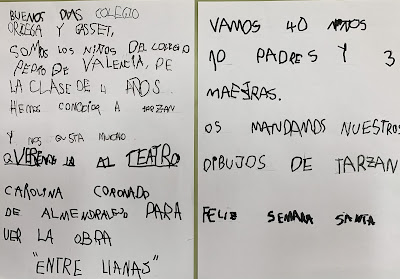 BUENOS DIAS COLEGIO
ORTEGA Y GASSET,
SOMOS LOS NIÑOS DEL COLEGIO
PEDRO DE VALENCIA, DE
LA CLASE DE 4 AÑOS.
HEMOS CONOCIDO A TARZAN
Y NOS GUSTA MUCHO
QUEREMOS IR AL TEATRO
CAROLINA CORONADO
DE ALMENDRALEJO PARA
VER LA OBRA
"ENTRE LIANAS"
VAMOS 40 NIÑOS
10 PADRES Y 3
MAESTRAS.
OS MANDAMOS NUESTROS
DIBUJOS DE TARZAN
FELIZ SEMANA SANTA